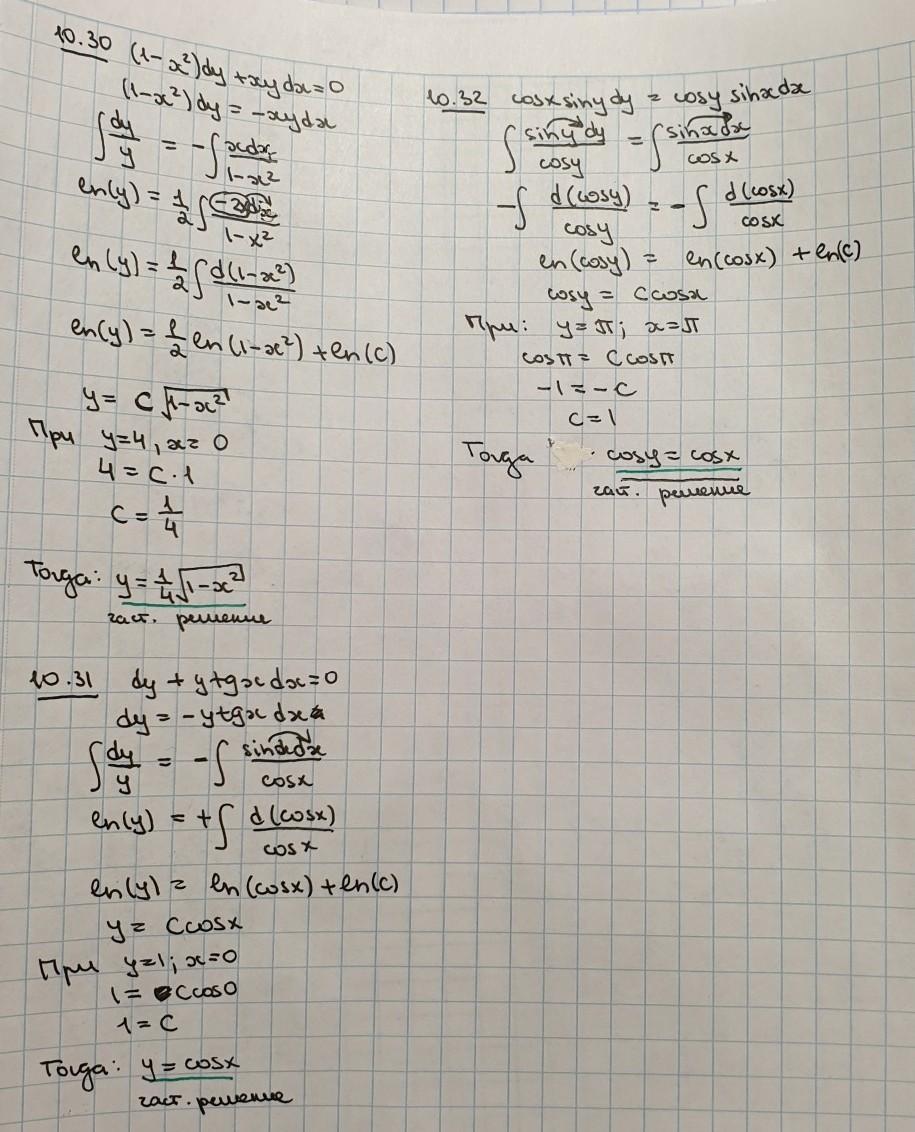 10.30 (1-x²)dy + xydx = 0
(1-x²)dy = -xydx
∫ dy/y = -∫ xdx/(1-x²)
ln(y) = 1/2 ∫ -2xdx/(1-x²)
ln(y) = 1/2 ∫ d(1-x²)/(1-x²)
ln(y) = 1/2 ln(1-x²) + ln(C)
y = C√(1-x²)
При y=4, x=0
4 = C·1
C = 1/4
Тогда: y = 1/4 √(1-x²)
част. решение
10.31 dy + ytgxdx = 0
dy = -ytgxdx
∫ dy/y = -∫ sinxdx/cosx
ln(y) = +∫ d(cosx)/cosx
ln(y) = ln(cosx) + ln(C)
y = Ccosx
При y=1; x=0
1 = Ccos0
1 = C
Тогда: y = cosx
част. решение
10.32 cosxsinydy = cosysinxdx
∫ sinydy/cosy = ∫ sinxdx/cosx
-∫ d(cosy)/cosy = -∫ d(cosx)/cosx
ln(cosy) = ln(cosx) + ln(C)
cosy = Ccosx
При: y=π; x=π
cosπ = Ccosπ
-1 = -C
C = 1
Тогда cosy = cosx
част. решение